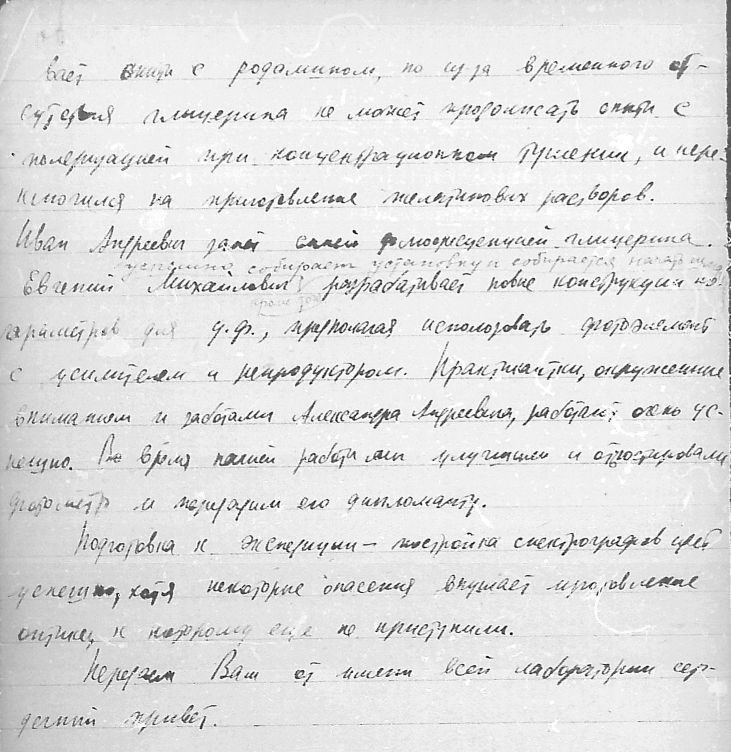 вает опыты с родамином, но из за временного от-
сутствия глицерина не может продолжать опыты с
поляризацией при концентрационном тушении, и пере-
ключился на приготовление желатиновых растворов.
Иван Андреевич занят синей флюоресценцией глицерина.
успешно собирает установку и собирается начать
Евгений Михайлович разрабатывает новые конструкции
кроме того
параметров для д.ф., предполагая использовать фотоэлемент
с усилителем и репродуктором. Практикантки, окруженные
вниманием и заботами Александра Андреевича, работают очень ус-
пешно. Во время нашей работы мы улучшили и отъюстировали
фотометр и передадим его дипломанту.
Подготовка к экспедиции – постройка спектрографов идет
успешно, хотя некоторые опасения внушает изготовление
оптики, к которому еще не приступили.
Передаем Вам от имени всей лаборатории сер-
дечный привет.